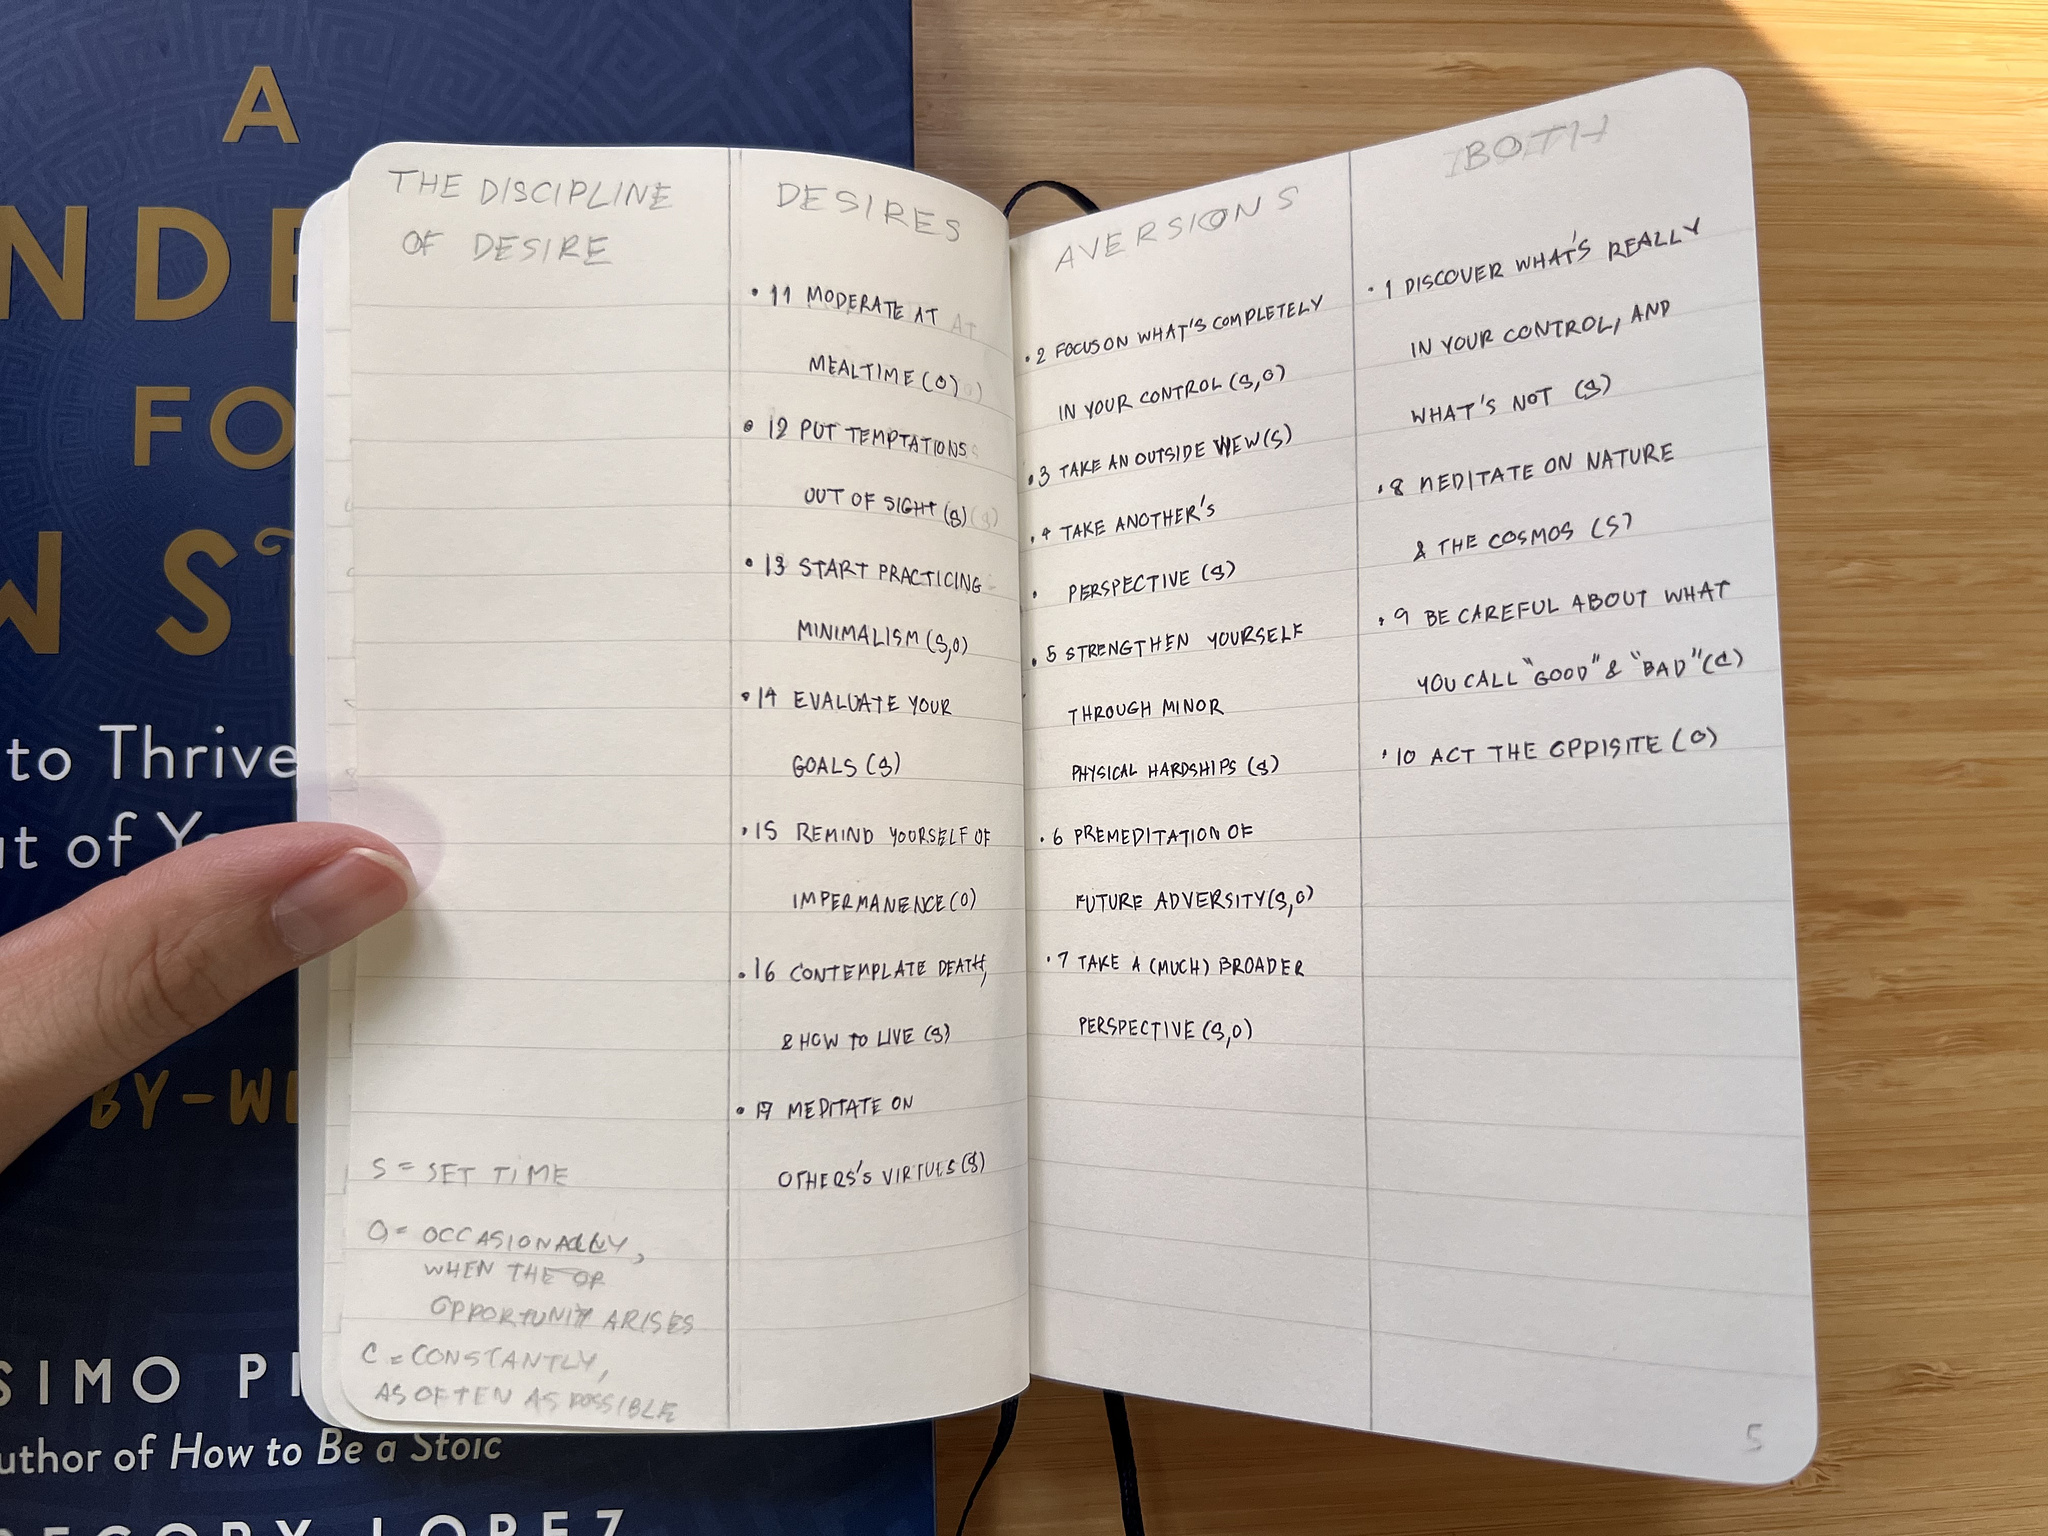 A
FO
to Thrive
of
BY-WI
SIMO PI
uthor of How to Be a Stoic
EGORY LOPEZ
THE DISCIPLINE
OF DESIRE
S = SET TIME
O = OCCASIONALLY,
WHEN THE OP
OPPORTUNITY ARISES
C = CONSTANTLY,
AS OFTEN AS POSSIBLE
DESIRES
• 11 MODERATE AT AT
MEALTIME (O)
• 12 PUT TEMPTATIONS
OUT OF SIGHT (S)
• 13 START PRACTICING
MINIMALISM (S,O)
• 14 EVALUATE YOUR
GOALS (S)
• 15 REMIND YOURSELF OF
IMPERMANENCE (O)
• 16 CONTEMPLATE DEATH,
& HOW TO LIVE (S)
• 17 MEDITATE ON
OTHERS'S VIRTUES (S)
AVERSIONS
• 2 FOCUS ON WHAT'S COMPLETELY
IN YOUR CONTROL (S,O)
• 3 TAKE AN OUTSIDE VIEW (S)
• 4 TAKE ANOTHER'S
• PERSPECTIVE (S)
• 5 STRENGTHEN YOURSELF
THROUGH MINOR
PHYSICAL HARDSHIPS (S)
• 6 PREMEDITATION OF
FUTURE ADVERSITY (S,O)
• 7 TAKE A (MUCH) BROADER
PERSPECTIVE (S,O)
BOTH
• 1 DISCOVER WHAT'S REALLY
IN YOUR CONTROL, AND
WHAT'S NOT (S)
• 8 MEDITATE ON NATURE
& THE COSMOS (S)
• 9 BE CAREFUL ABOUT WHAT
YOU CALL "GOOD" & "BAD" (C)
• 10 ACT THE OPPISITE (O)
5